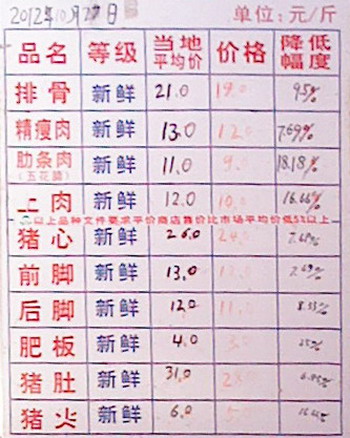 2012年10月27日 单位：元/斤
品名 等级 当地平均价 价格 降低幅度
排骨 新鲜 21.0 19.0 9.5%
精瘦肉 新鲜 13.0 12.0 7.69%
肋条肉（五花肉） 新鲜 11.0 9.0 18.18%
上肉 新鲜 12.0 10.0 16.66%
以上品种文件要求平价商店售价比市场平均价低5%以上
猪心 新鲜 26.0 24.0 7.69%
前脚 新鲜 13.0 12.0 7.69%
后脚 新鲜 12.0 11.0 8.33%
肥板 新鲜 4.0 3.0 25%
猪肚 新鲜 31.0
猪火 新鲜 6.0 5.0 16.66%